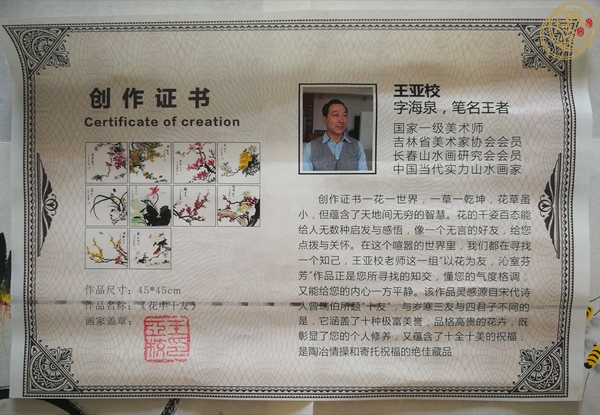 创作证书
Certificate of creation
作品尺寸：45*45cm
作品名称：《花中十友》
画家盖章：
王亚校
字海泉，笔名王者
国家一级美术师
吉林省美术家协会会员
长春山水画研究会会员
中国当代实力山水画家
创作证书一花一世界，一草一乾坤，花草虽
小，但蕴含了天地间无穷的智慧。花的千姿百态能
给人无数种启发与感悟，像一个无言的好友，给您
点拨与关怀。在这个喧嚣的世界里，我们都在寻找
一个知己，王亚校老师这一组“以花为友，沁室芬
芳”作品正是您所寻找的知交，懂您的气度格调，
又能给您的内心一方平静。该作品灵感源自宋代诗
人曾瑞伯所题“十友”，与岁寒三友与四君子不同的
是，它涵盖了十种极富美誉，品格高贵的花卉，既
彰显了您的个人修养，又蕴含了十全十美的祝福，
是陶冶情操和寄托祝福的绝佳藏品